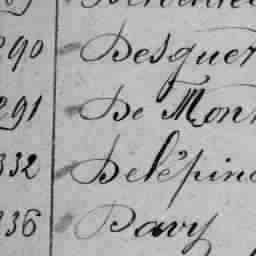 290 Desquer
291 De Mon
332 Delépin
336 Davy